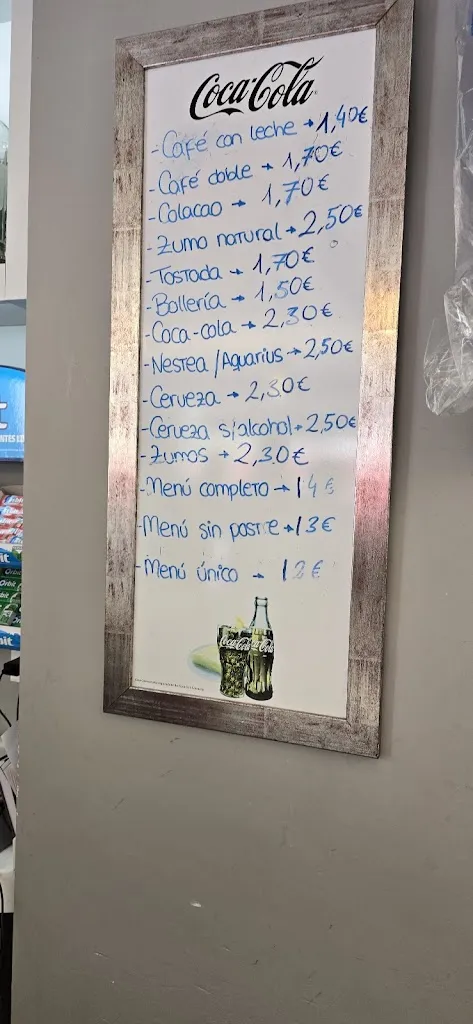 Coca-Cola
- Café con leche → 1,40€
- Café doble → 1,70€
- Colacao → 1,70€
- Zumo natural → 2,50€
- Tostada → 1,70€
- Bollería → 1,50€
- Coca-cola → 2,30€
- Nestea / Aquarius → 2,50€
- Cerveza → 2,30€
- Cerveza s/alcohol → 2,50€
- Zumos → 2,30€
- Menú completo → 14€
- Menú sin postre → 13€
- Menú único → 12€
Coca-Cola
Orbit